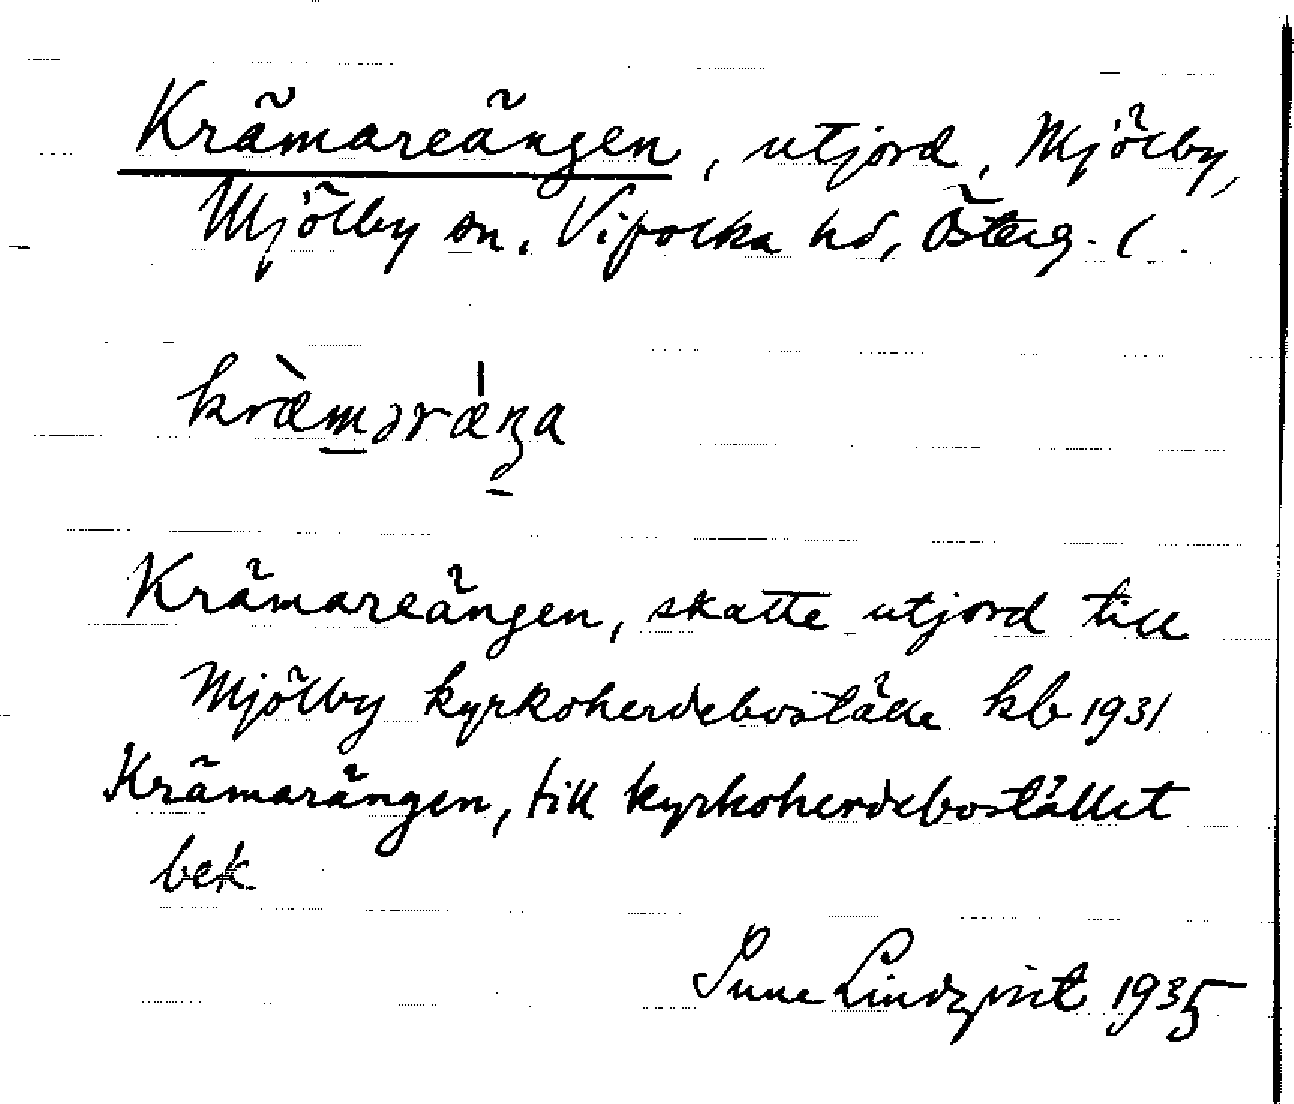 Krämareängen, utjord, Mjölby,
Mjölby sn, Vifolka hd, Österg. l.
kræ̀mərǽŋa
Krämareängen, skatte utjord till
Mjölby kyrkoherdeboställe kb 1931
Krämarängen, till kyrkoherdebostället
bek
Sune Lindqvist 1935